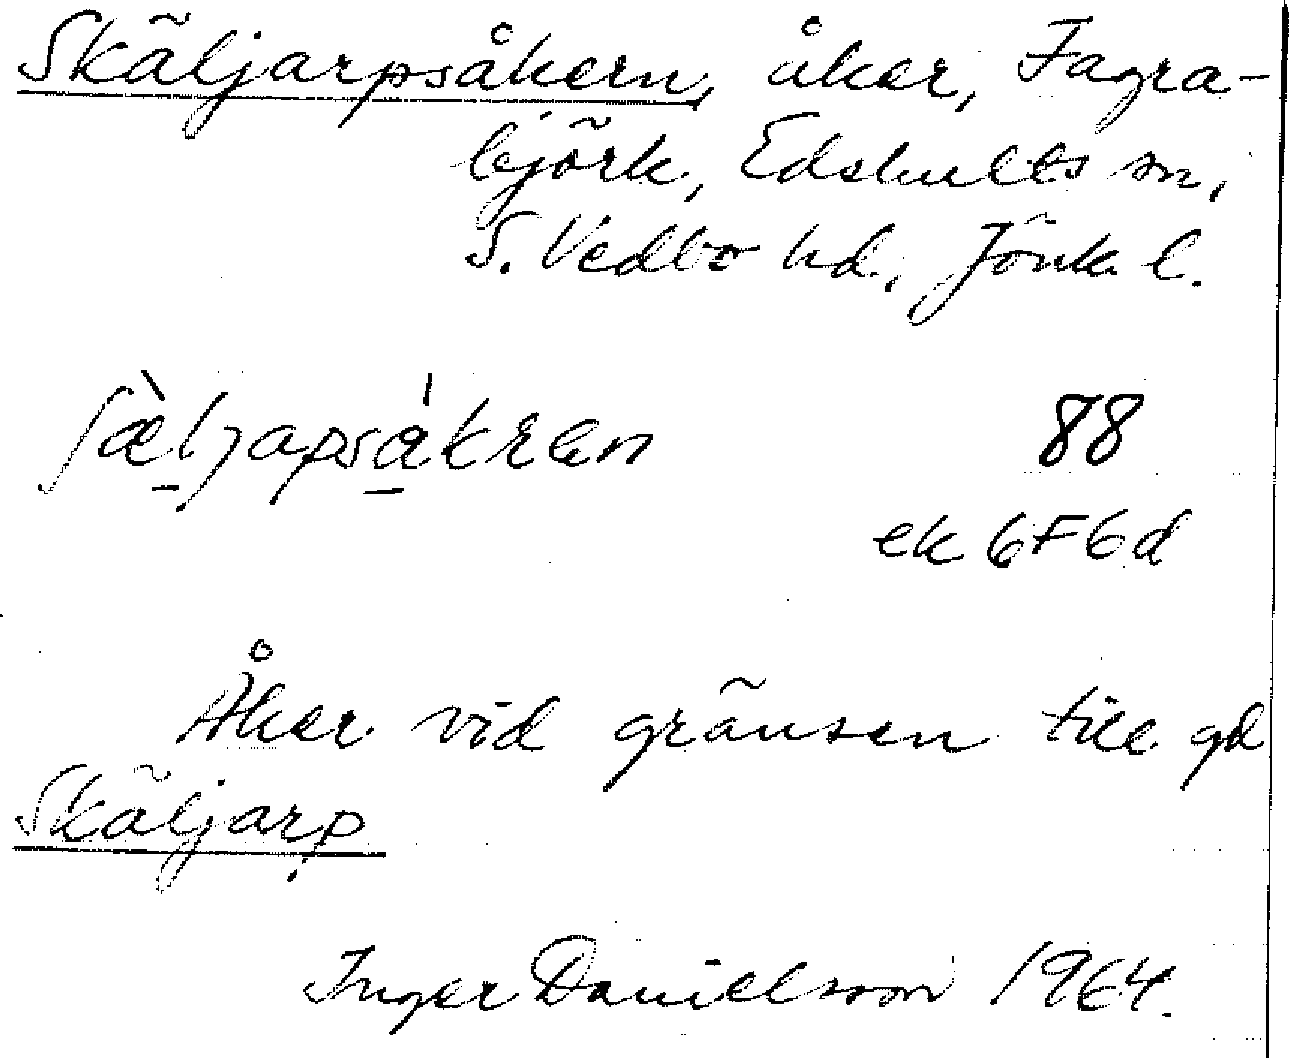 Skäljarpsåkern, åker, Fagra-
björk, Edshults sn,
S. Vedbo hd, Jönk. l.
ʃæ̱̀ljapsa̱̍kran 88
ek 6F6d
Åker vid gränsen till gd
Skäljarp
Inger Danielsson 1964.